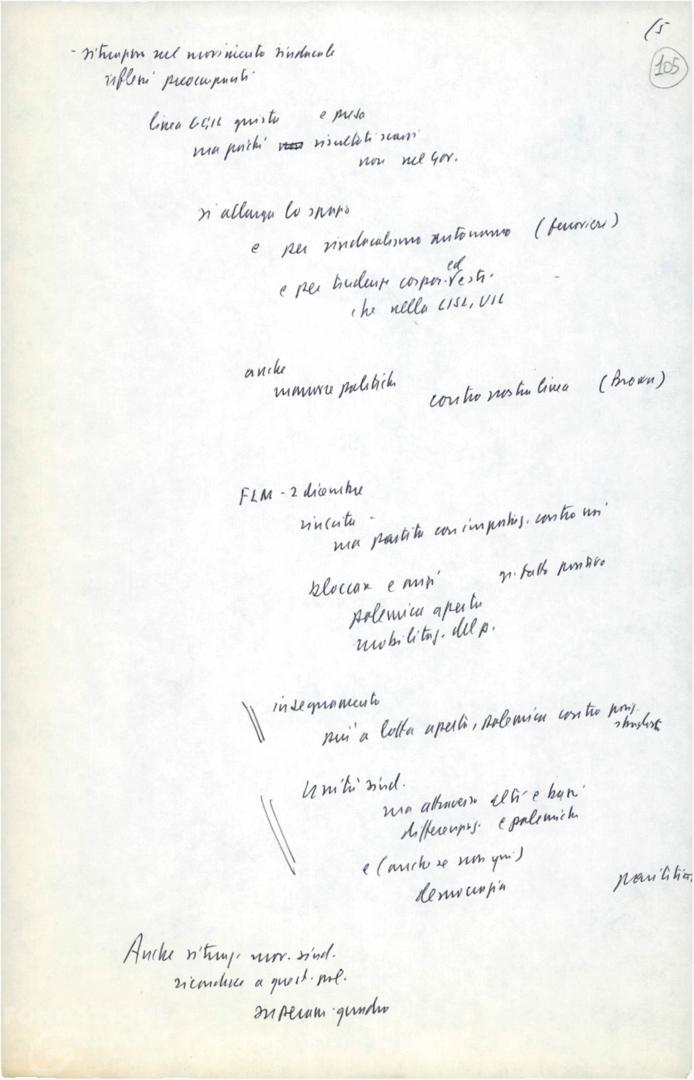 15
105
- situazion nel movimento sindacale
riflessi preoccupanti
linea CGIL giusta e presa
ma poiché risultati scarsi
non nel Gov.
si allarga lo spazio
e per sindacalismo autonomo (ferrovieri)
e per tendenze corpor. ed estr.
che nella CISL, UIL
anche
manovre politiche contro nostra linea (Brown)
FLM - 2 dicembre
riuscita -
ma partita con impostaz. contro noi
bloccare e
si. fatto positivo
polemica aperta
mobilitaz. del p.
insegnamento
più a lotta aperta, polemica contro posiz.
Unità sind.
ma attraverso alti e bassi
differenziaz. e polemiche
e (anche se non qui)
democrazia
Anche situaz. mov. sind.
riconduce a quest.
quadro